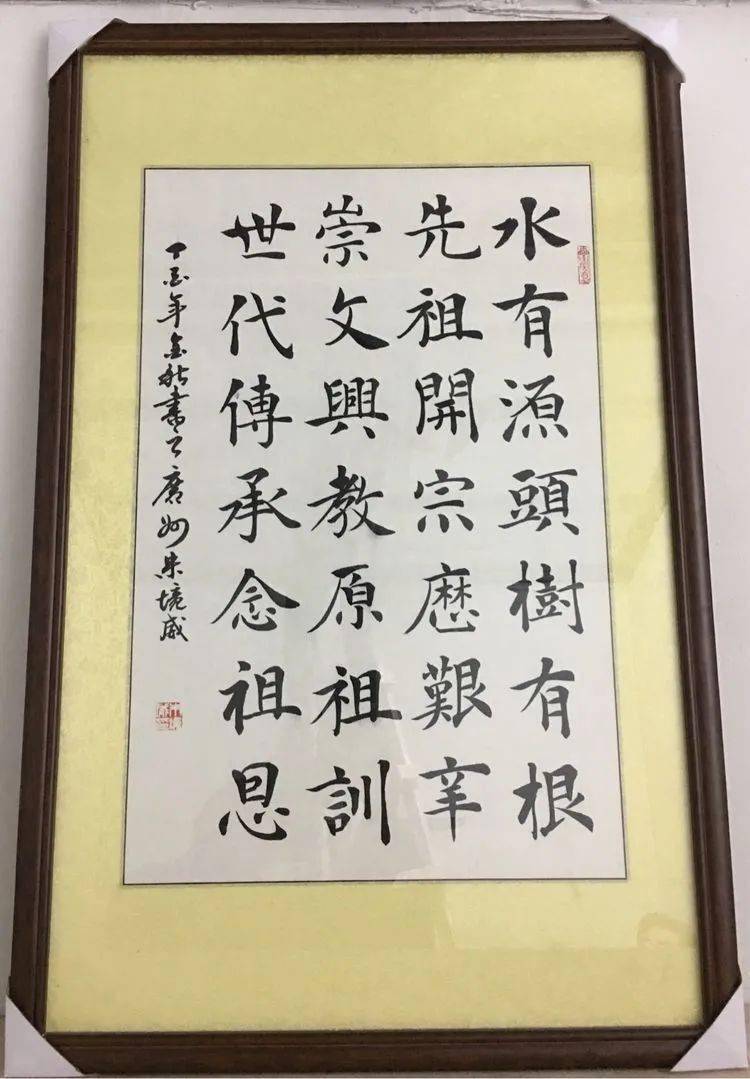 水有源頭樹有根
先祖開宗歷艱辛
崇文興教原祖訓
世代傳承念祖恩
丁酉年金秋書於廣州朱境威